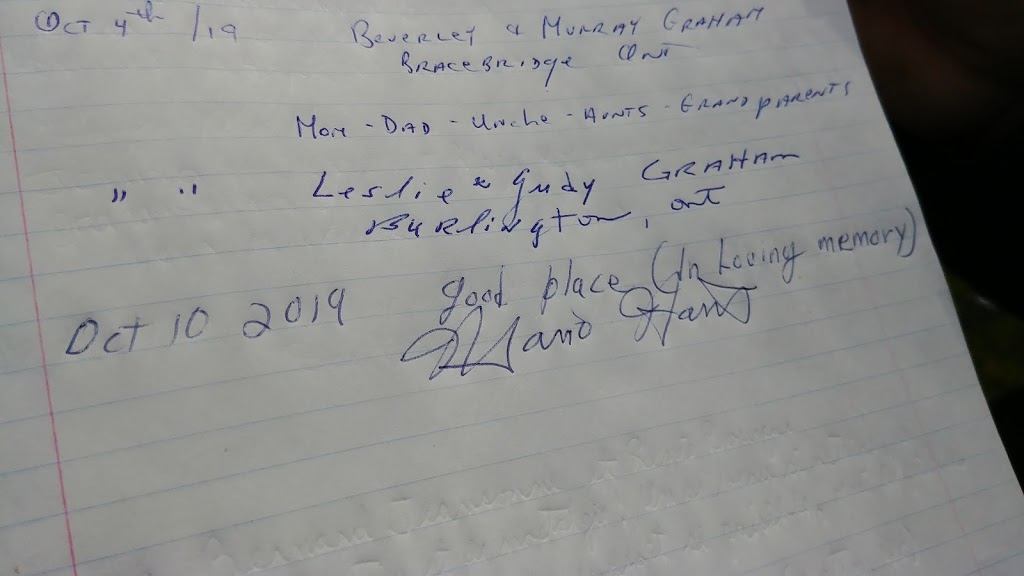 Oct 4th /19 Beverley & Murray Graham
Bracebridge Ont
Mom - Dad - Uncle - Aunts - Grandparents
" " Leslie & Judy Graham
Burlington, ont
Oct 10 2019 good place (In Loving memory)
Mario